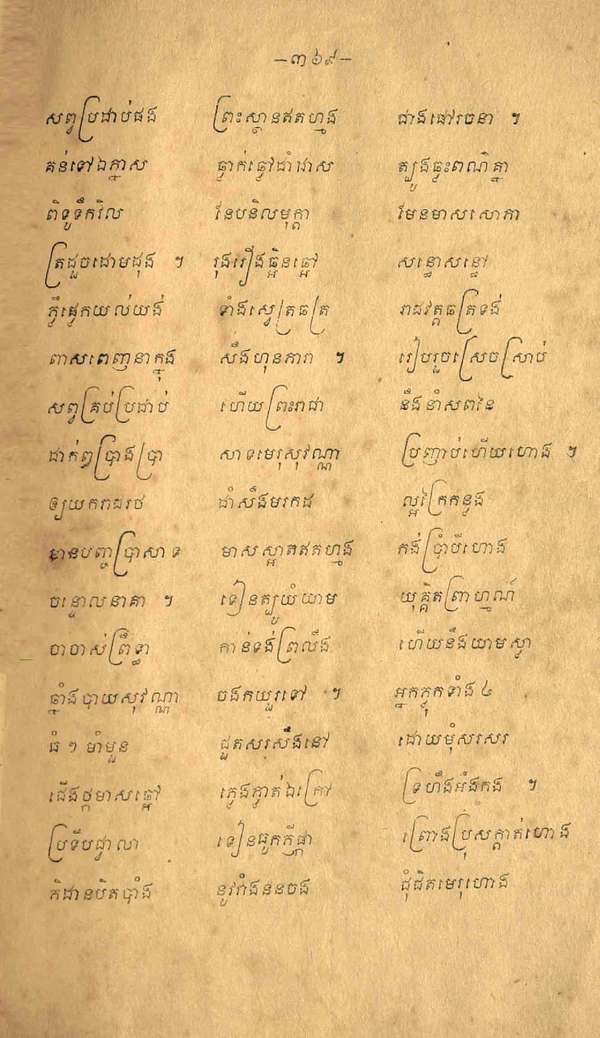 –៣៦៩–
សព្វប្រដាប់ផង ព្រះស្ថានឥតហ្មង ជាងនៅរចនា ។
គន់ទៅឯក្នាស ថ្នាក់ធ្វៅដាំវាស ត្បូងធ្លុះពណ៌គ្នា
ពិទូទឹកវិល វែនបនិលមុក្ដា វែមនមាសសោភា
ត្រដួចដោមដុង ។ រុងរឿងធ្អិនឆ្អៅ សន្ធោសន្ធៅ
ភ្លឺផ្ទេកយល់យង់ ទាំងស្វេត្រឆត្រ រាជវត្តឆត្រទង់
ពាសពេញនាក្នុង សឹងហុនភារា ។ រៀបរួចស្រេចស្រាប់
សព្វគ្រប់ប្រដាប់ ហើយព្រះរាជា នឹងនាំសពនៃ
ដាក់ឰប្រាងប្រា សាទមេរុសុវណ្ណា ប្រញាប់ហើយហោង ។
ឲ្យយករាជរថ ដាំសឹងមរកដ ល្អក្រៃកន្ទង
មានបញ្ចប្រាសាទ មាសស្អាតឥតហ្មង កង់ប្រាំបីហោង
ចន្ទោលនាគា ។ ទៀនត្បូយំយាម យុគ្គិតព្រាហ្មណ៍
ចាចាស់ព្រឹទ្ធា កាន់ទង់ព្រលឹង ហើយនឹងយាមស្វា
ឆ្នាំងបាយសុវណ្ណា ចងកយួរទៅ ។ អ្នកភ្លុកទាំង ៤
ធំ ៗ មាំមួន ដួតសរសឹងនៅ ដោយមុំសរសេរ
ជើងថ្កមាសឆ្អៅ ភ្លេងភ្លាត់ឯក្រៅ ទ្រហឹងអឺងកង ។
ប្រទីបជ្វាលា ទៀនធូកក្លីផ្កា ព្រោងប្រុសក្ដាត់ហោង
ពិដានបិតបាំង នូវរាំងននចង ជុំជិតមេរុហោង